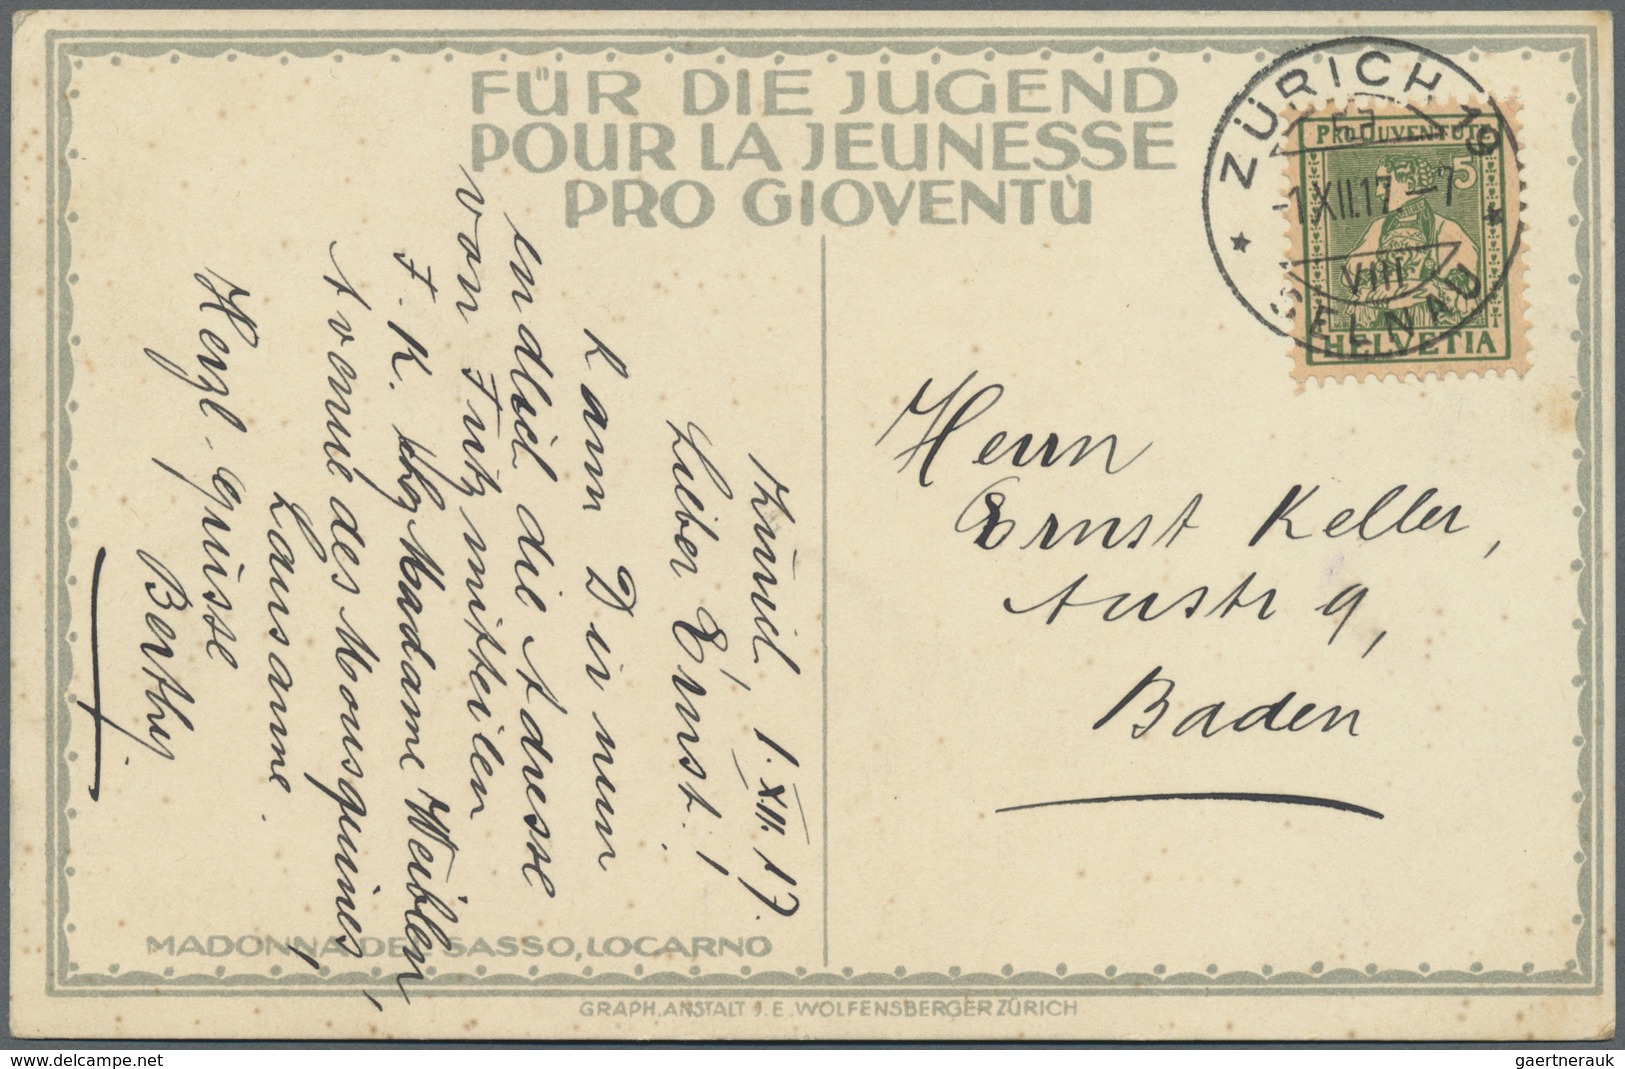 FÜR DIE JUGEND
POUR LA JEUNESSE
PRO GIOVENTÙ
ZÜRICH 19
-1.XII.17.-7
VIII
SELNAU
PRO JUVENTUTE
5
HELVETIA
Zürich 1. XII. 17.
Lieber Ernst!
kann Dir nun
endlich die Adresse
von Fritz mitteilen
F. K. Madame Weiblen,
Avenue des Mousquines,
Lausanne.
Herzl. Grüsse
Berthy.
Herrn
Ernst Keller,
Austr 9,
Baden
MADONNA DEL SASSO, LOCARNO
GRAPH. ANSTALT J. E. WOLFENSBERGER ZÜRICH
www.delcampe.net
gaertnerauk